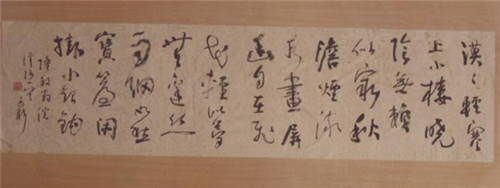 漠々輕寒
上小樓曉
陰無賴
似窮秋
澹煙流
水畫屏
幽自在飛
花輕似夢
無邊絲
雨細如愁
寶簾閑
掛小銀鉤